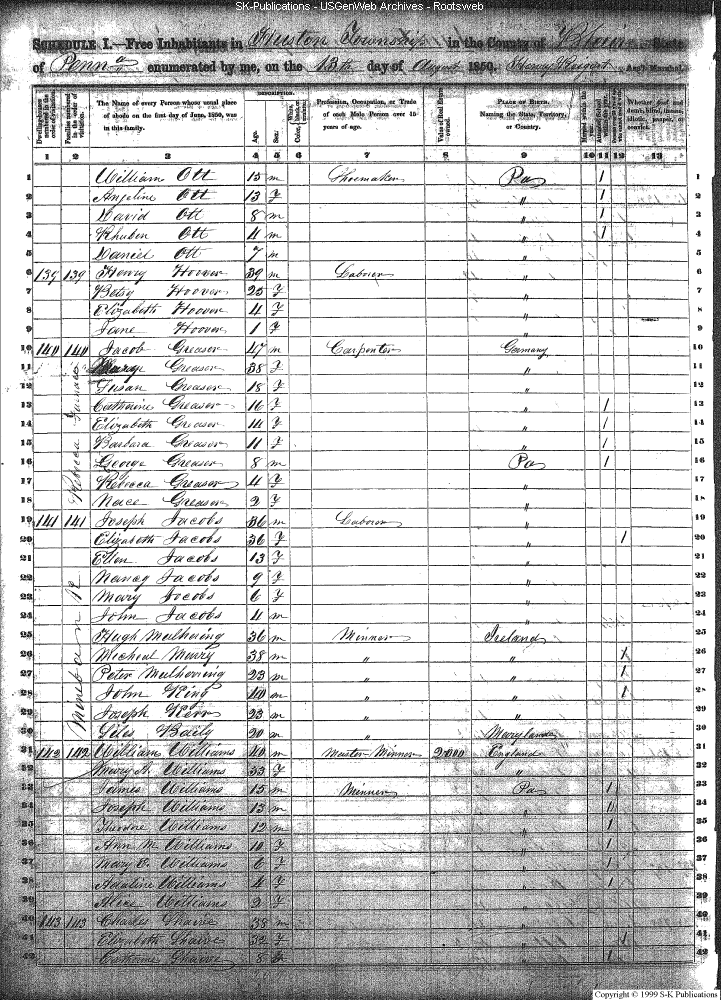 SK-Publications - USGenWeb Archives - Rootsweb
SCHEDULE I.—Free Inhabitants in Huston Township in the County of Blair State
of Penna enumerated by me, on the 13th day of August 1850. Ass't Marshal.
Dwelling-houses numbered in the order of visitation. Families numbered in the order of visitation. The Name of every Person whose usual place of abode on the first day of June, 1850, was in this family. DESCRIPTION. Age. Sex. Profession, Occupation, or Trade of each Male Person over 15 years of age. Value of Real Estate owned. PLACE OF BIRTH. Naming the State, Territory, or Country. Married within the year. Whether deaf and dumb, blind, insane, idiotic, pauper, or convict.
1 2 3 4 5 6 7 8 9 10 11 12 13
1 William Ott 15 m Shoemaker Pa 1 1
2 Angeline Ott 13 F " 1 2
3 David Ott 8 m " 1 3
4 Rhuben Ott 4 m " 1 4
5 Daniel Ott 7 m " 5
6 139 139 Henry Hoover 39 m Laborer " 6
7 Betsy Hoover 25 F " 7
8 Elizabeth Hoover 4 F " 8
9 Jane Hoover 1 F " 9
10 140 140 Jacob Greaser 47 m Carpenter Germany 10
11 Mary Greaser 38 F " 11
12 Susan Greaser 18 F " 12
13 Catharine Greaser 16 F " 1 13
14 Elizabeth Greaser 14 F " 1 14
15 Barbara Greaser 11 F " 1 15
16 George Greaser 8 m Pa 1 16
17 Rebecca Greaser 4 F " 17
18 Nace Greaser 2 F " 18
Rebecca Furnace
19 141 141 Joseph Jacobs 36 m Laborer " 19
20 Elizabeth Jacobs 36 F " 1 20
21 Ellen Jacobs 13 F " 21
22 Nancy Jacobs 9 F " 22
23 Mary Jacobs 6 F " 23
24 John Jacobs 4 m " 24
25 Hugh Mulhering 36 m Minner Ireland 25
26 Micheal Mowry 38 m " " 1 26
27 Peter Mulhering 23 m " " 1 27
28 John King 40 m " " 1 28
29 Joseph Kerr 23 m " " 29
30 Giles Baily 20 m " Maryland 30
31 142 142 William Williams 40 m Master Minner 2,000 England 31
32 Mary A. Williams 33 F " 32
33 James Williams 15 m Minner Pa 1 33
34 Joseph Williams 13 m " 1 34
35 Theodore Williams 12 m " 1 35
36 Ann M. Williams 10 F " 1 36
37 Mary E. Williams 6 F " 1 37
38 Adaline Williams 4 F " 1 38
39 Alice Williams 2 F " 39
40 143 143 Charles 38 m " 40
41 Elizabeth 32 F " 1 41
42 Catharine 8 F " 1 42
Copyright © 1999 S-K Publications